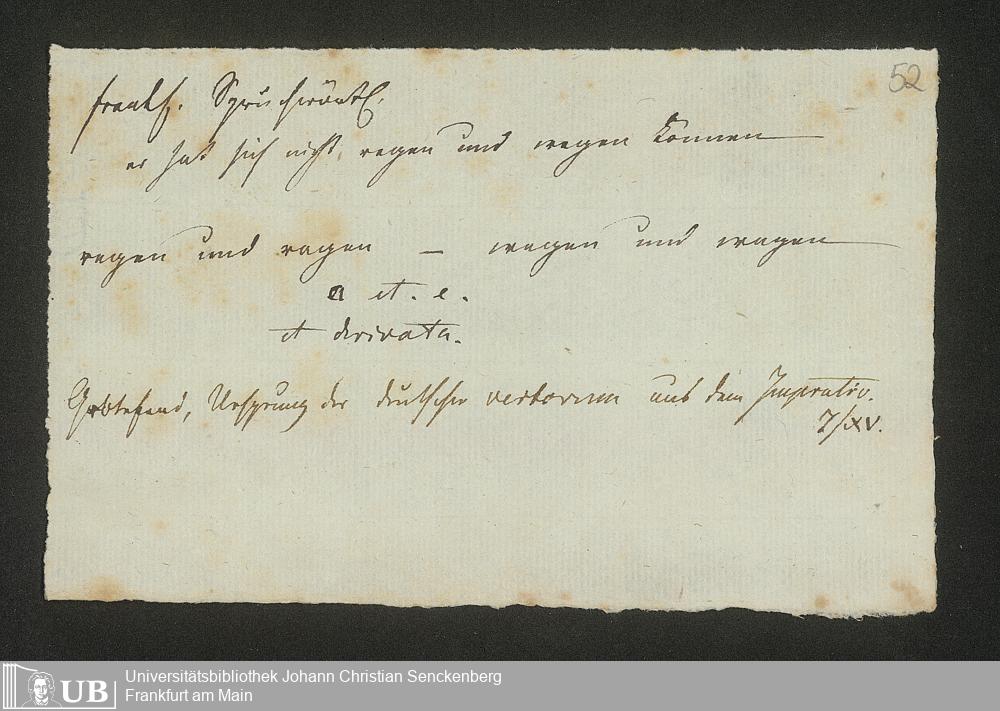 52
frankf. Spruchwörtl.
er hat sich nicht regen und wegen können
regen und ragen — wegen und wagen
a et. e.
et derivata.
Grotefend, Ursprung der deutschen verborum aus dem Imperativ.
7/XV.
Universitätsbibliothek Johann Christian Senckenberg
UB Frankfurt am Main